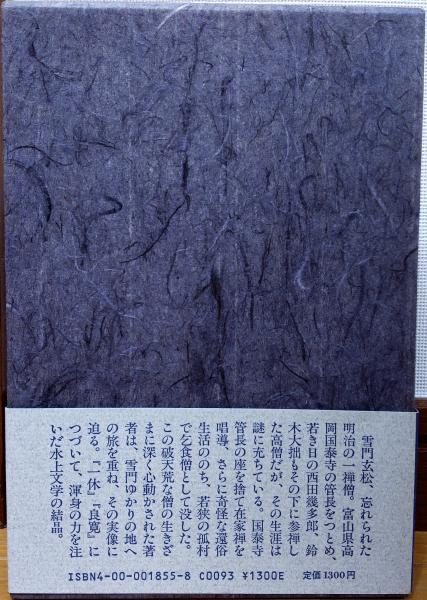 雪門玄松、忘れられた
明治の一禅僧。富山県高
岡国泰寺の管長をつとめ、
若き日の西田幾多郎、鈴
木大拙もその下に参禅し
た高僧だが、その生涯は
謎に充ちている。国泰寺
管長の座を捨て在家禅を
唱導、さらに奇怪な還俗
生活ののち、若狭の孤村
で乞食僧として没した。
この破天荒な僧の生きざ
まに深く心動かされた著
者は、雪門ゆかりの地へ
の旅を重ね、その実像に
迫る。「一休」「良寛」に
つづいて、渾身の力を注
いだ水上文学の結晶。
ISBN4-00-001855-8 C0093 ¥1300E 定価1300円